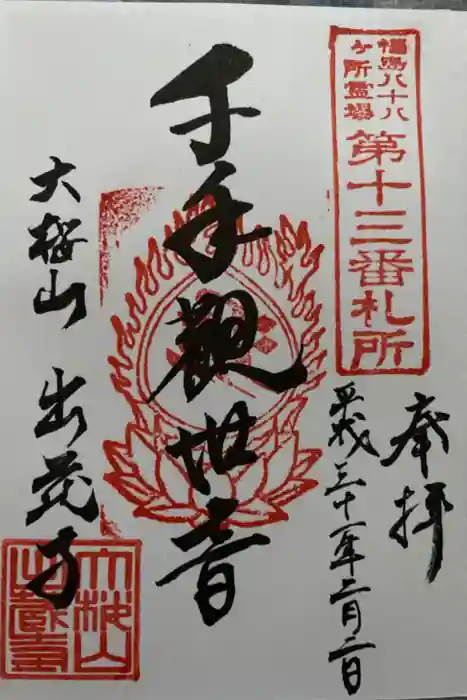 福島八十八
ヶ所霊場
第十三番札所
奉拝
平成三十一年二月二日
千手觀世音
大桜山 出蔵寺
大桜山
出蔵寺